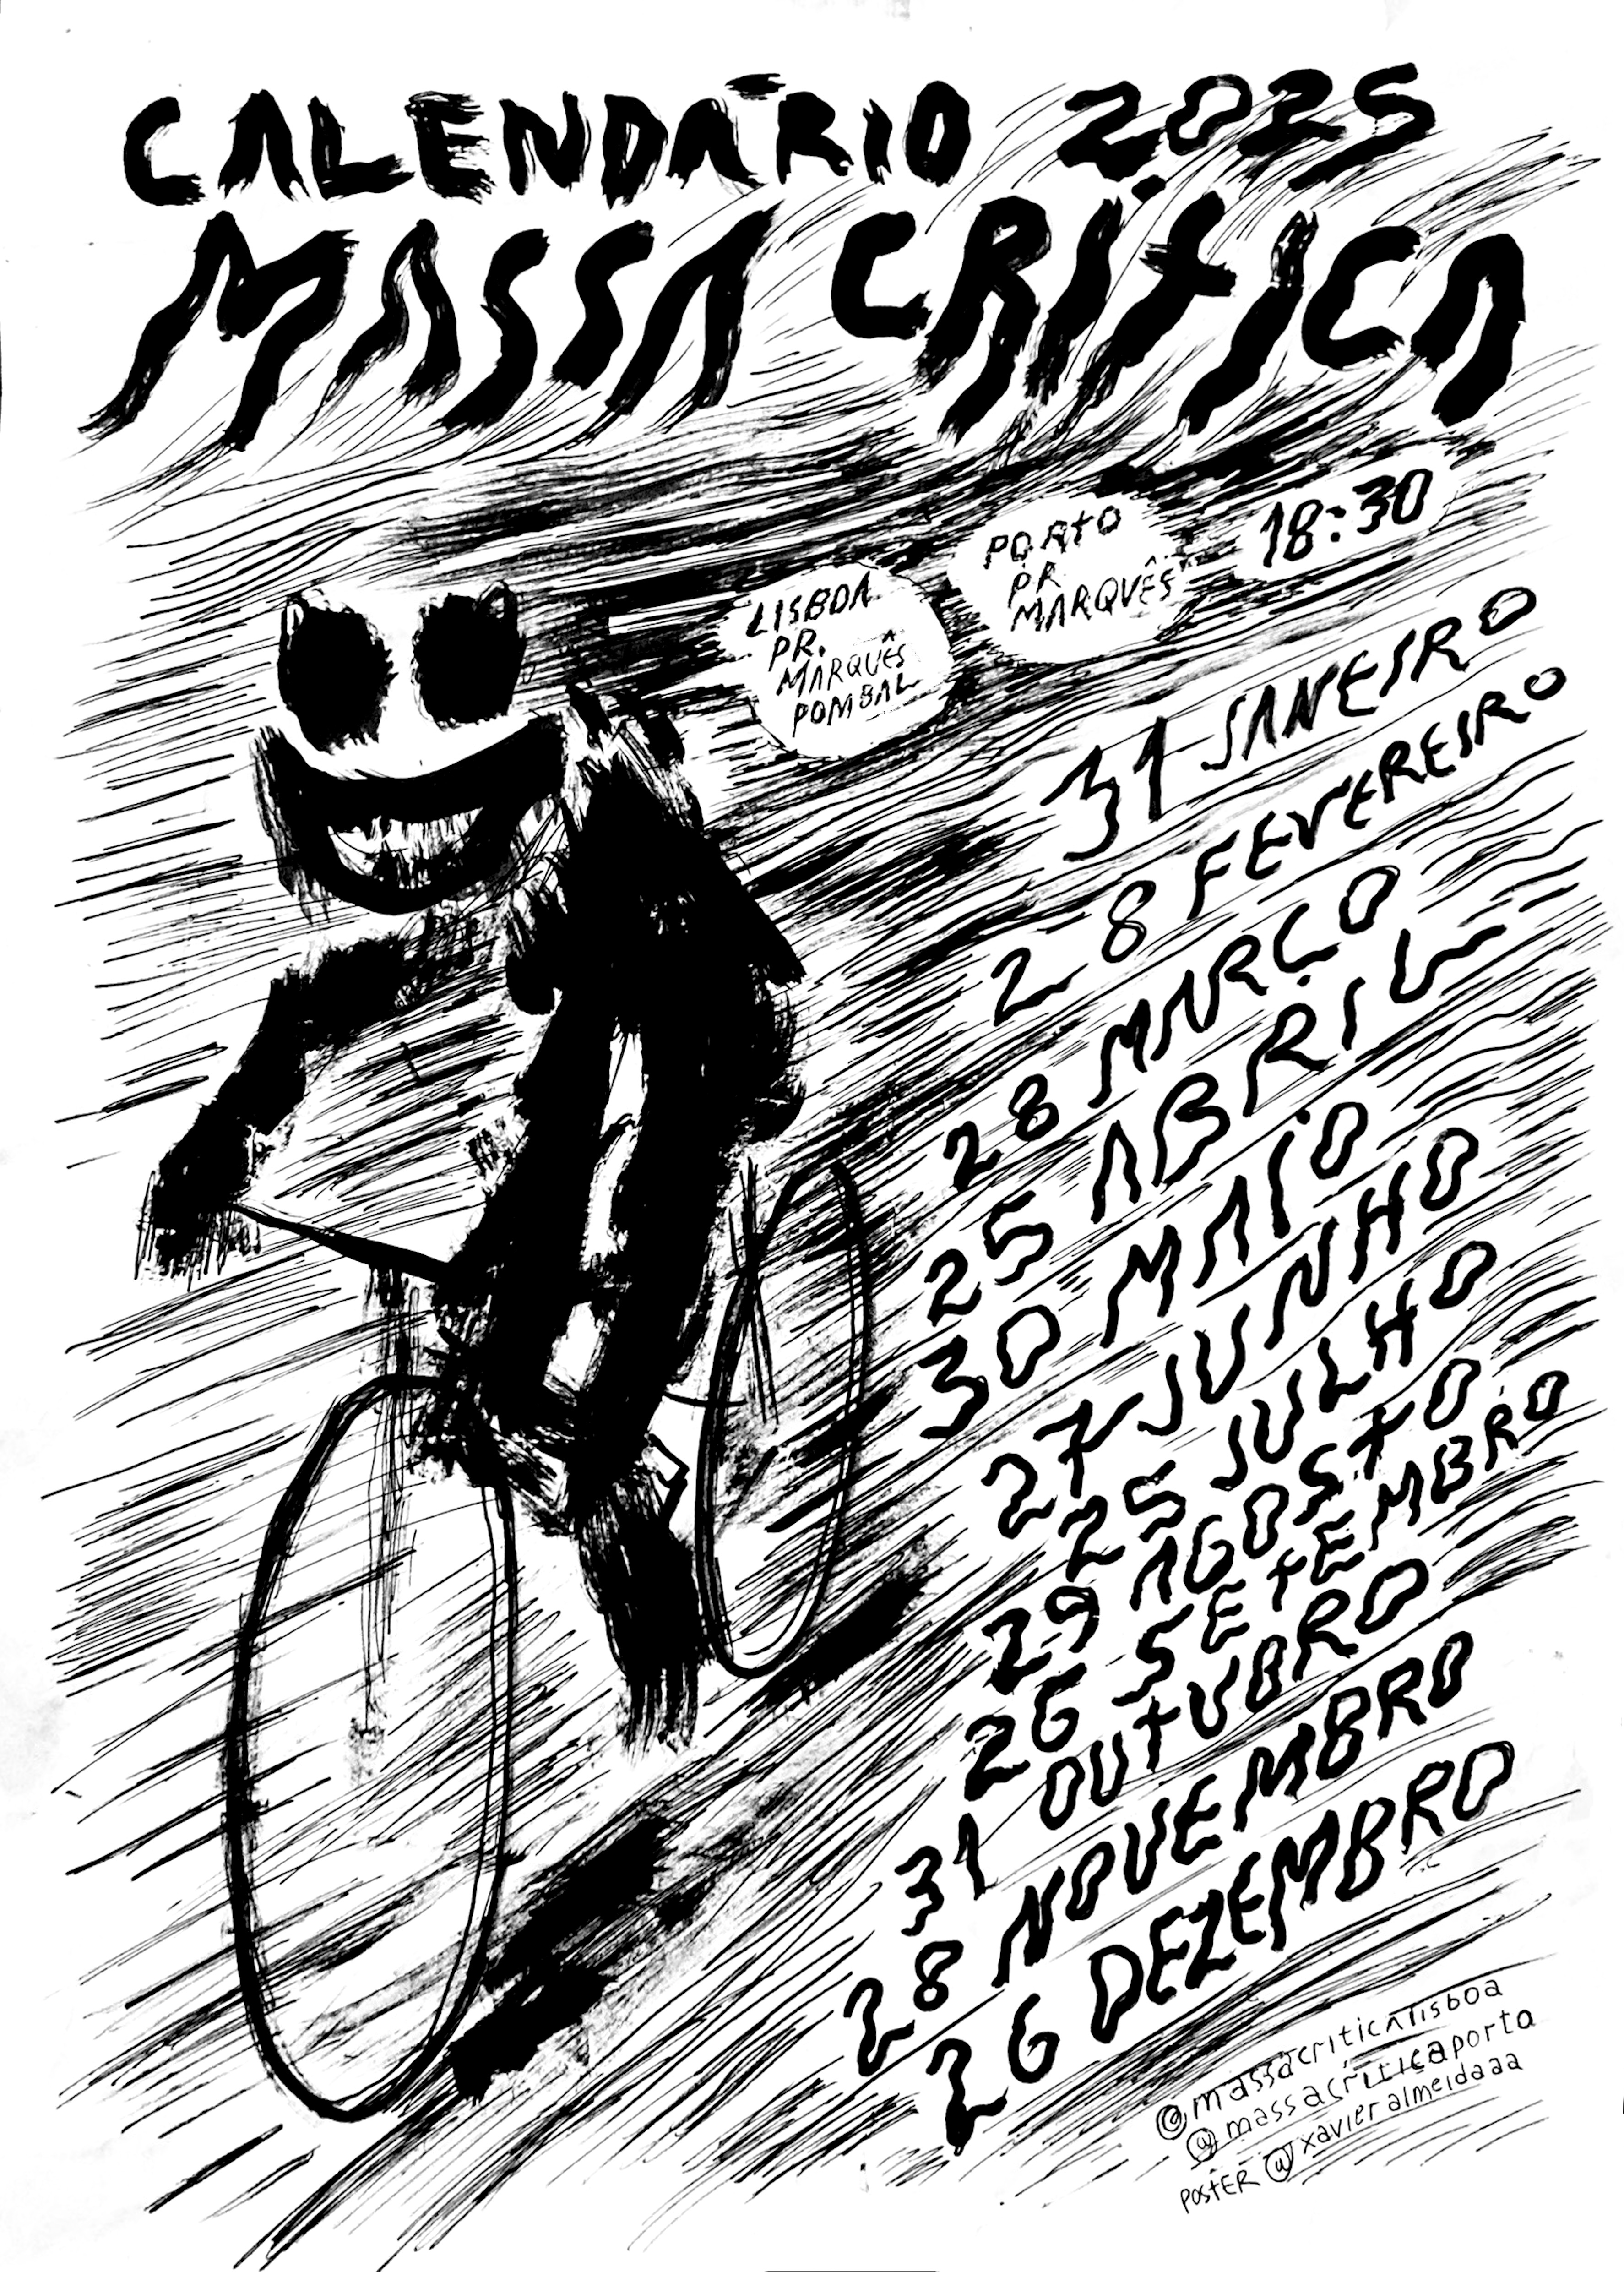 CALENDÁRIO 2025
MASSA CRÍTICA
LISBOA
PR.
MARQUÊS
POMBAL
PORTO
PR
MARQUÊS
18:30
31 JANEIRO
28 FEVEREIRO
28 MARÇO
25 ABRIL
30 MAIO
27 JUNHO
25 JULHO
29 AGOSTO
26 SETEMBRO
31 OUTUBRO
28 NOVEMBRO
26 DEZEMBRO
@massacriticalisboa
@massacríticaporto
POSTER @xavieralmeidaaa